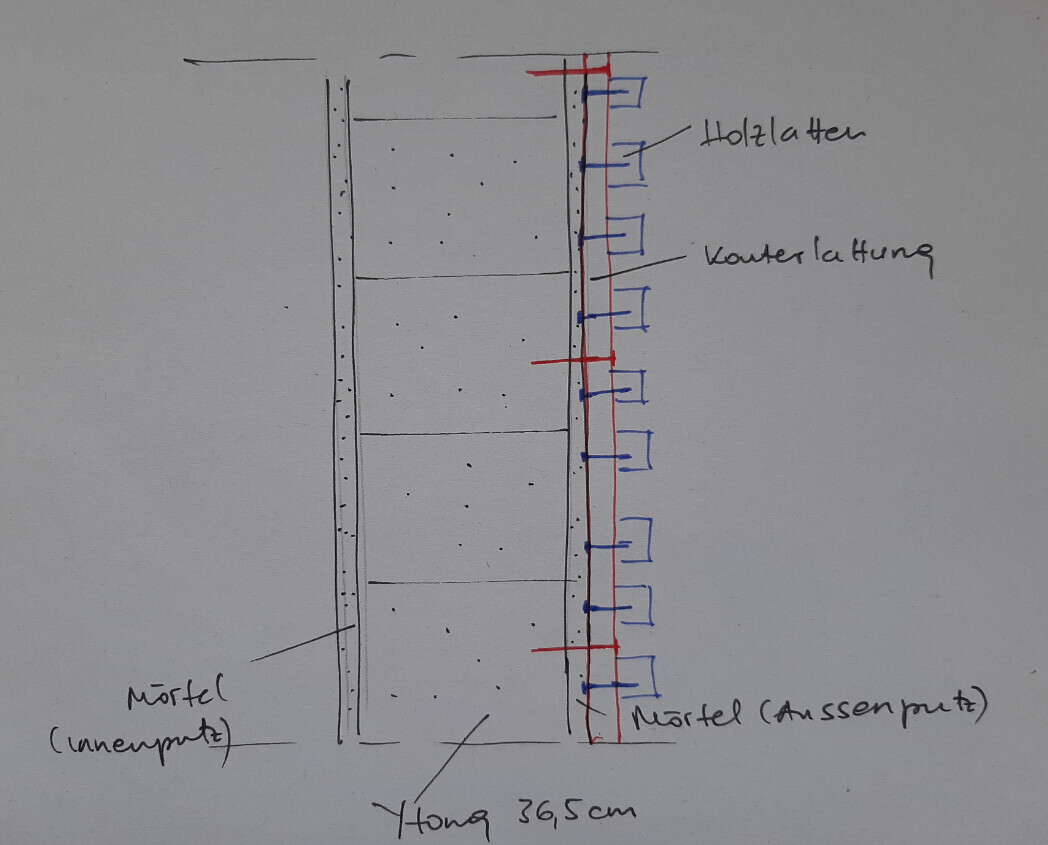 Holzlatten
Konterlattung
Mörtel
(Innenputz)
Mörtel (Aussenputz)
Ytong 36,5cm